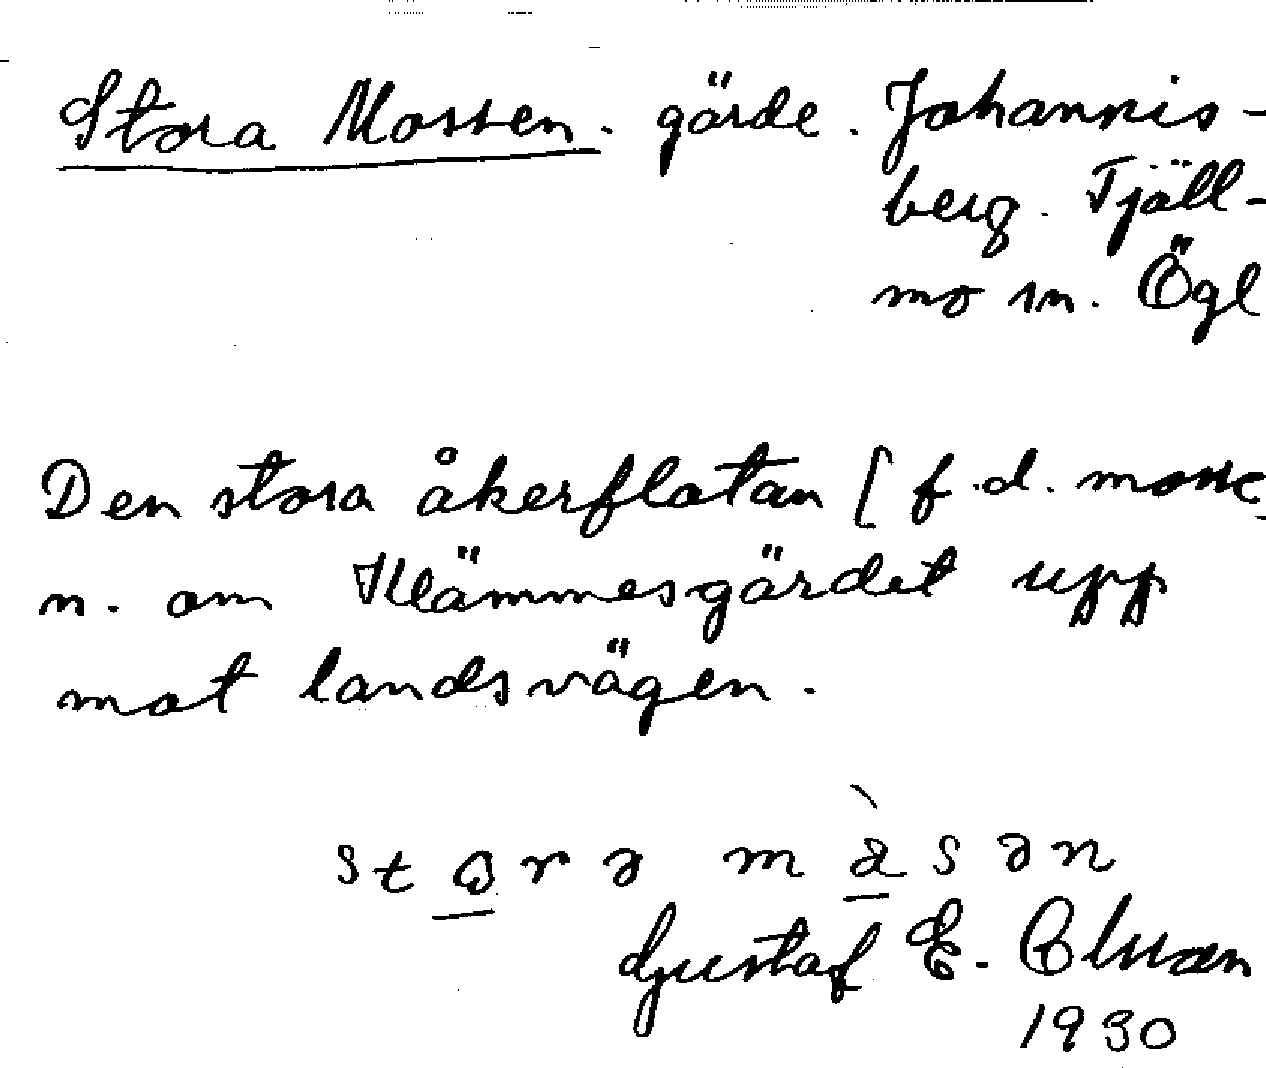 Stora Mossen. gärde. Johannis-
berg. Tjäll-
mo sn. Ögl
Den stora åkerflatan [f.d. mosse
n. om Klämmesgärdet upp
mot landsvägen.
Gustaf E.
1930